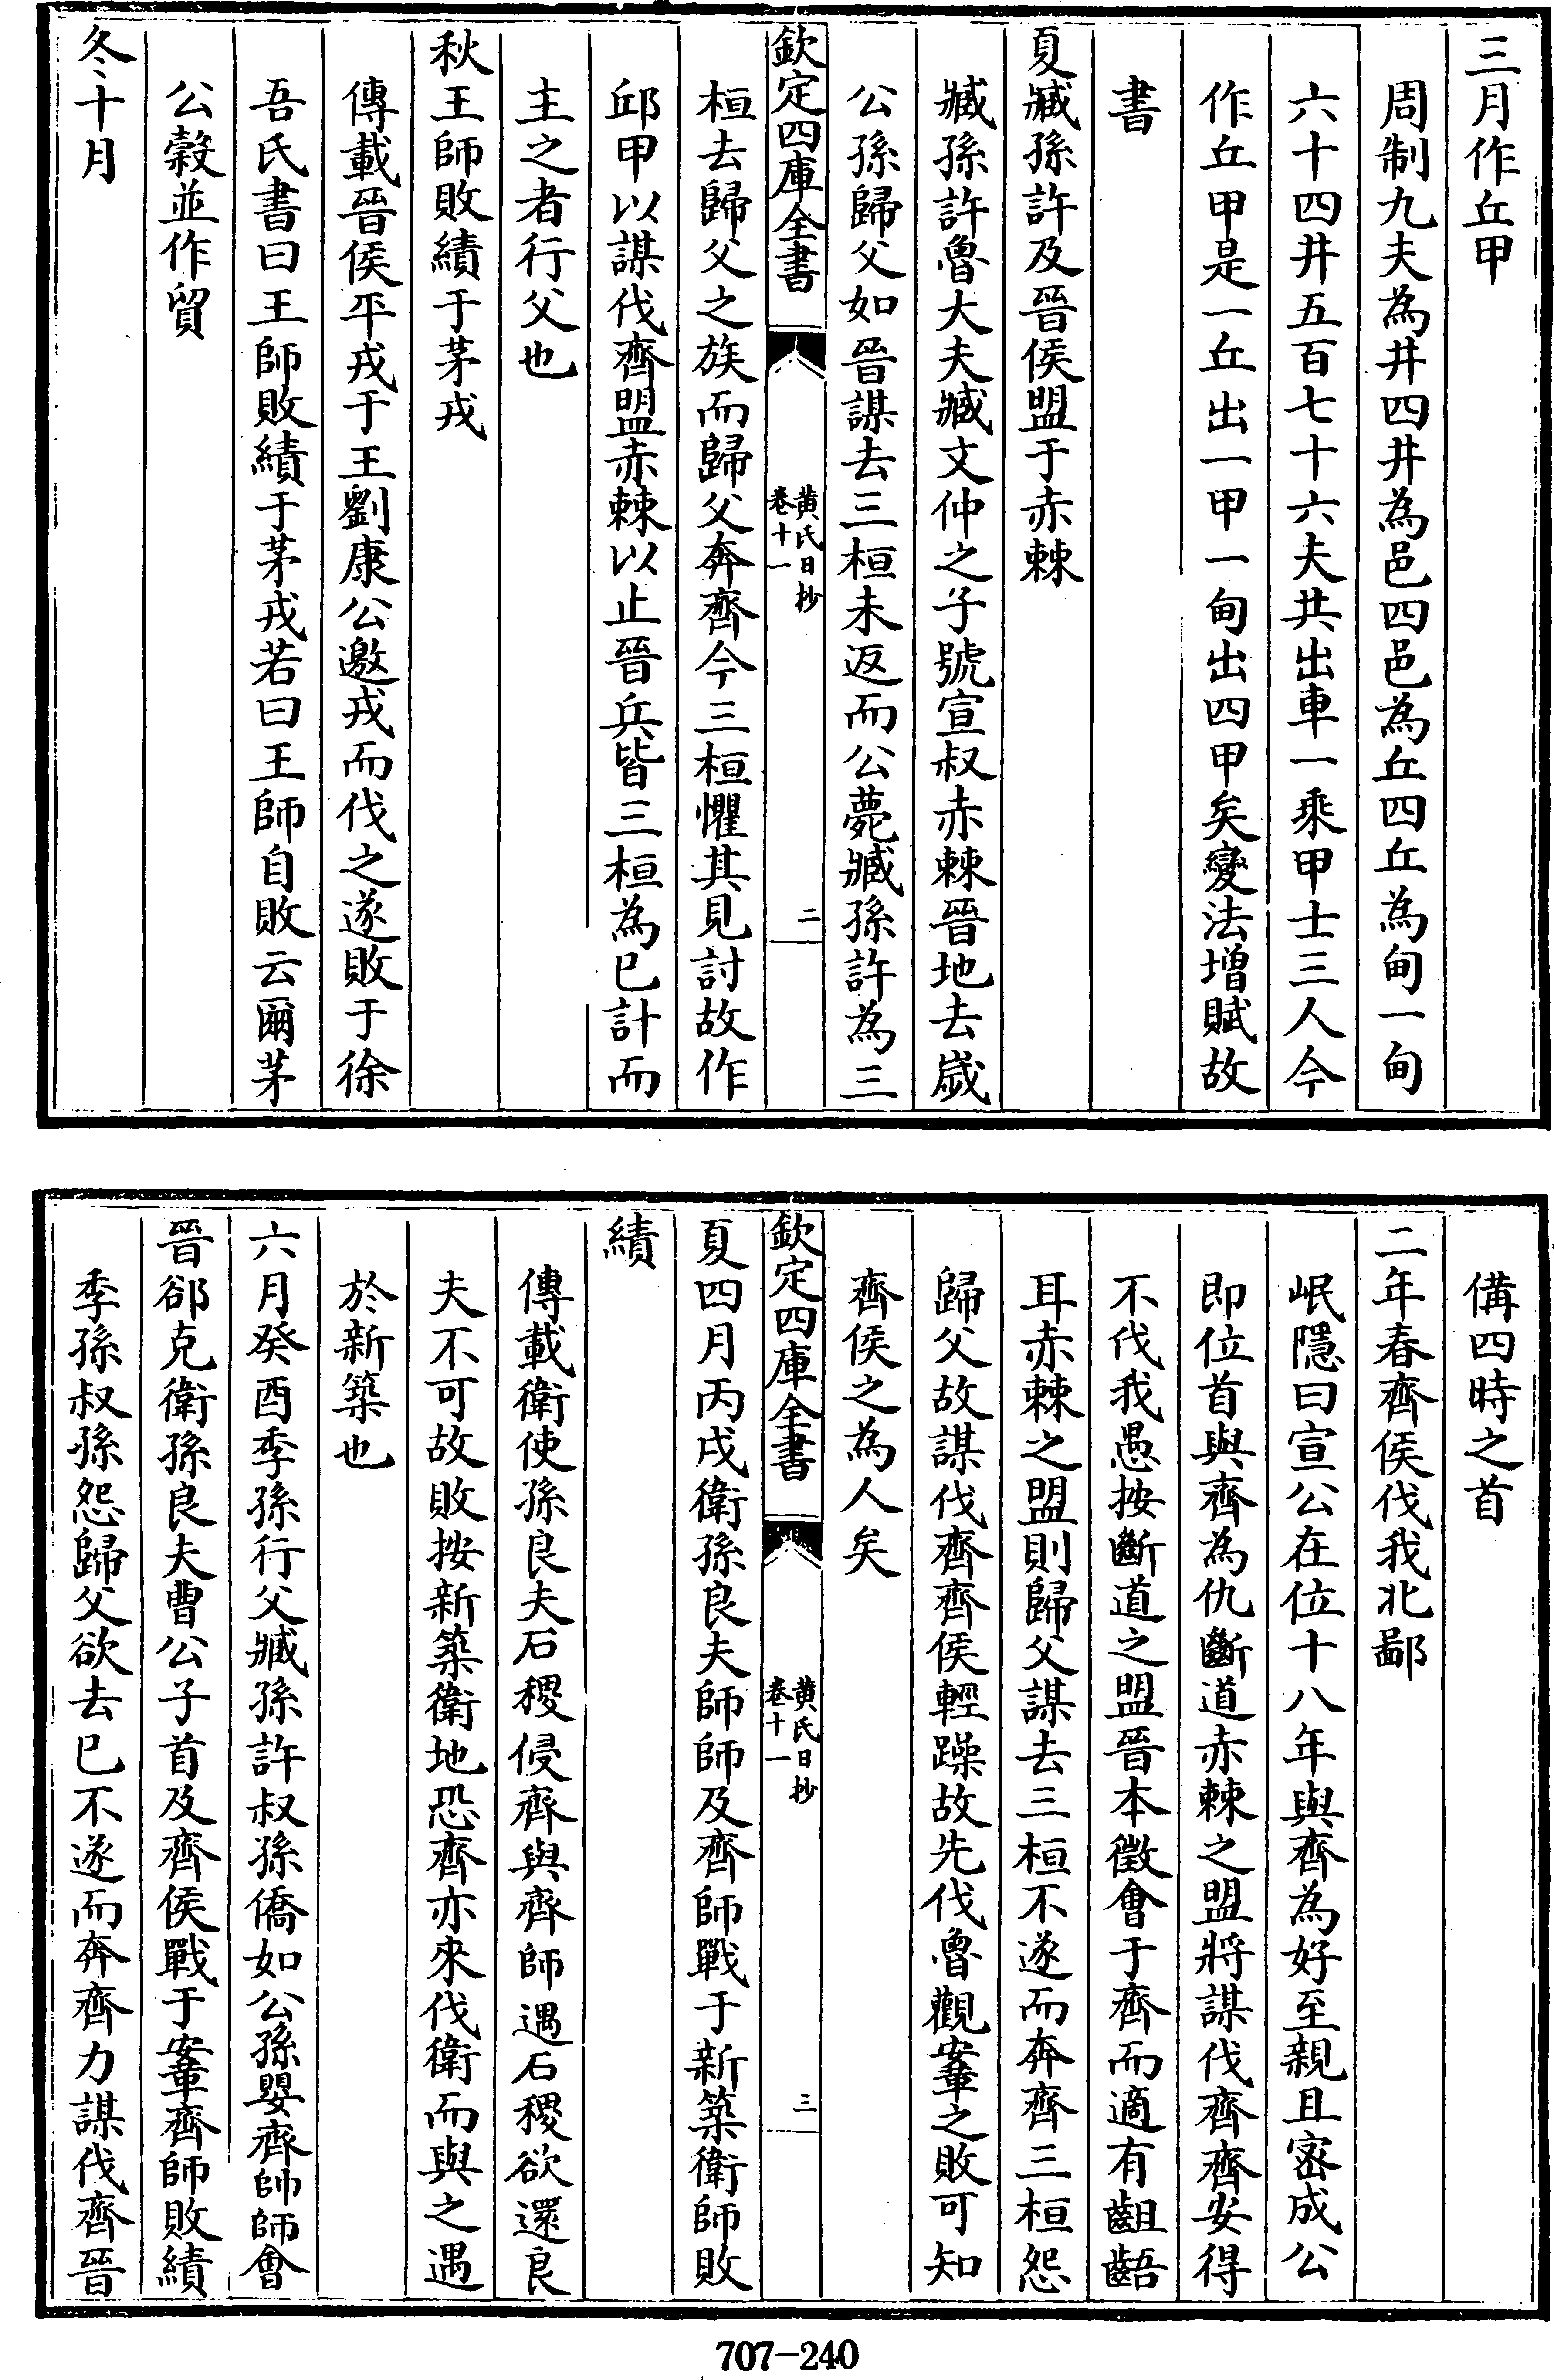 三月作丘甲
周制九夫為井四井為邑四邑為丘四丘為甸一甸
六十四井五百七十六夫共出車一乘甲士三人今
作丘甲是一丘出一甲一甸出四甲矣變法增賦故
書
夏臧孫許及晉侯盟于赤棘
臧孫許魯大夫臧文仲之子號宣叔赤棘晉地去嵗
公孫歸父如晉謀去三桓未返而公薨臧孫許為三
欽定四庫全書
黄氏日抄
卷十一
二
桓去歸父之族而歸父奔齊今三桓懼其見討故作
邱甲以謀伐齊盟赤棘以止晉兵皆三桓為已計而
主之者行父也
秋王師敗績于茅戎
傳載晉侯平戎于王劉康公邀戎而伐之遂敗于徐
吾氏書曰王師敗績于茅戎若曰王師自敗云爾茅
公糓並作貿
冬十月
備四時之首
二年春齊侯伐我北鄙
岷隱曰宣公在位十八年與齊為好至親且宻成公
即位首與齊為仇斷道赤棘之盟將謀伐齊齊安得
不伐我愚按斷道之盟晉本徵會于齊而適有齟齬
耳赤棘之盟則歸父謀去三桓不遂而奔齊三桓怨
歸父故謀伐齊齊侯輕躁故先伐魯觀鞌之敗可知
齊侯之為人矣
欽定四庫全書
黄氏日抄
卷十一
三
夏四月丙戌衛孫良夫師師及齊師戰于新築衛師敗
績
傳載衛使孫良夫石稷侵齊與齊師遇石稷欲還良
夫不可故敗按新築衛地恐齊亦來伐衛而與之遇
於新築也
六月癸酉季孫行父臧孫許叔孫僑如公孫嬰齊帥師會
晉郤克衛孫良夫曹公子首及齊侯戰于鞌齊師敗績
季孫叔孫怨歸父欲去已不遂而奔齊力謀伐齊晉
707-240